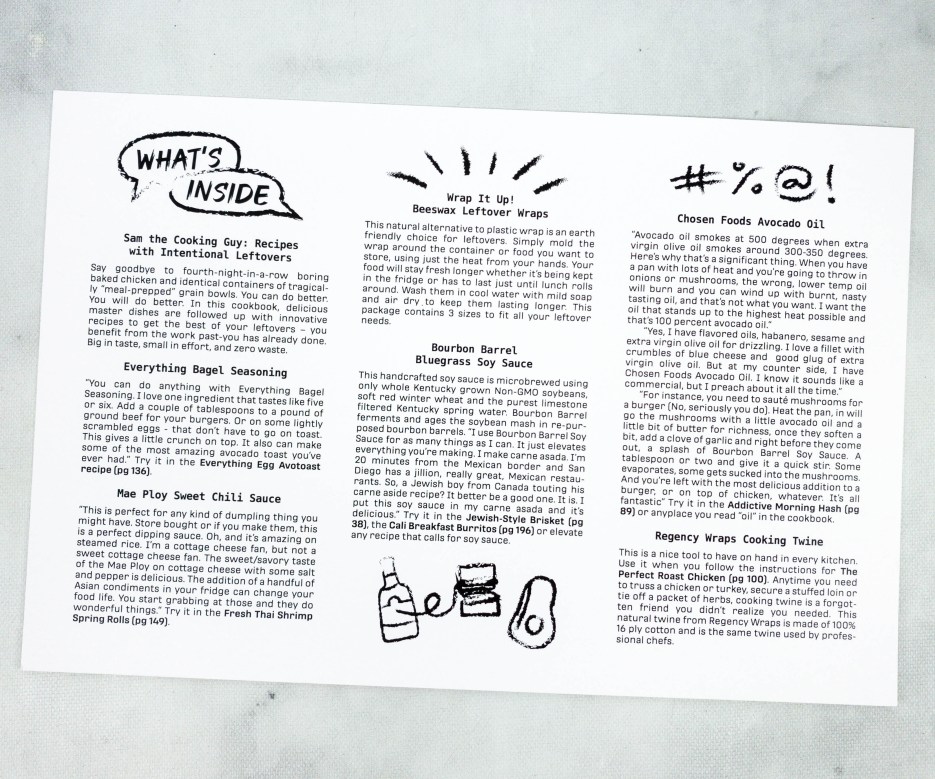 WHAT'S
INSIDE
Sam the Cooking Guy: Recipes
with Intentional Leftovers
Say goodbye to fourth-night-in-a-row boring
baked chicken and identical containers of tragical-
ly "meal-prepped" grain bowls. You can do better.
You will do better. In this cookbook, delicious
master dishes are followed up with innovative
recipes to get the best of your leftovers – you
benefit from the work past-you has already done.
Big in taste, small in effort, and zero waste.
Everything Bagel Seasoning
"You can do anything with Everything Bagel
Seasoning. I love one ingredient that tastes like five
or six. Add a couple of tablespoons to a pound of
ground beef for your burgers. Or on some lightly
scrambled eggs - that don't have to go on toast.
This gives a little crunch on top. It also can make
some of the most amazing avocado toast you've
ever had." Try it in the Everything Egg Avotoast
recipe (pg 136).
Mae Ploy Sweet Chili Sauce
"This is perfect for any kind of dumpling thing you
might have. Store bought or if you make them, this
is a perfect dipping sauce. Oh, and it's amazing on
steamed rice. I'm a cottage cheese fan, but not a
sweet cottage cheese fan. The sweet/savory taste
of the Mae Ploy on cottage cheese with some salt
and pepper is delicious. The addition of a handful of
Asian condiments in your fridge can change your
food life. You start grabbing at those and they do
wonderful things." Try it in the Fresh Thai Shrimp
Spring Rolls (pg 149).
Wrap It Up!
Beeswax Leftover Wraps
This natural alternative to plastic wrap is an earth
friendly choice for leftovers. Simply mold the
wrap around the container or food you want to
store, using just the heat from your hands. Your
food will stay fresh longer whether it's being kept
in the fridge or has to last just until lunch rolls
around. Wash them in cool water with mild soap
and air dry to keep them lasting longer. This
package contains 3 sizes to fit all your leftover
needs.
Bourbon Barrel
Bluegrass Soy Sauce
This handcrafted soy sauce is microbrewed using
only whole Kentucky grown Non-GMO soybeans,
soft red winter wheat and the purest limestone
filtered Kentucky spring water. Bourbon Barrel
ferments and ages the soybean mash in re-pur-
posed bourbon barrels. "I use Bourbon Barrel Soy
Sauce for as many things as I can. It just elevates
everything you're making. I make carne asada. I'm
20 minutes from the Mexican border and San
Diego has a jillion, really great, Mexican restau-
rants. So, a Jewish boy from Canada touting his
carne aside recipe? It better be a good one. It is. I
put this soy sauce in my carne asada and it's
delicious." Try it in the Jewish-Style Brisket (pg
38), the Cali Breakfast Burritos (pg 196) or elevate
any recipe that calls for soy sauce.
#%@!
Chosen Foods Avocado Oil
"Avocado oil smokes at 500 degrees when extra
virgin olive oil smokes around 300-350 degrees.
Here's why that's a significant thing. When you have
a pan with lots of heat and you're going to throw in
onions or mushrooms, the wrong, lower temp oil
will burn and you can wind up with burnt, nasty
tasting oil, and that's not what you want. I want the
oil that stands up to the highest heat possible and
that's 100 percent avocado oil."
"Yes, I have flavored oils, habanero, sesame and
extra virgin olive oil for drizzling. I love a fillet with
crumbles of blue cheese and good glug of extra
virgin olive oil. But at my counter side, I have
Chosen Foods Avocado Oil. I know it sounds like a
commercial, but I preach about it all the time."
"For instance, you need to sauté mushrooms for
a burger (No, seriously you do). Heat the pan, in will
go the mushrooms with a little avocado oil and a
little bit of butter for richness, once they soften a
bit, add a clove of garlic and right before they come
out, a splash of Bourbon Barrel Soy Sauce. A
tablespoon or two and give it a quick stir. Some
evaporates, some gets sucked into the mushrooms.
And you're left with the most delicious addition to a
burger, or on top of chicken, whatever. It's all
fantastic" Try it in the Addictive Morning Hash (pg
89) or anyplace you read "oil" in the cookbook.
Regency Wraps Cooking Twine
This is a nice tool to have on hand in every kitchen.
Use it when you follow the instructions for The
Perfect Roast Chicken (pg 100). Anytime you need
to truss a chicken or turkey, secure a stuffed loin or
tie off a packet of herbs, cooking twine is a forgot-
ten friend you didn't realize you needed. This
natural twine from Regency Wraps is made of 100%
16 ply cotton and is the same twine used by profes-
sional chefs.